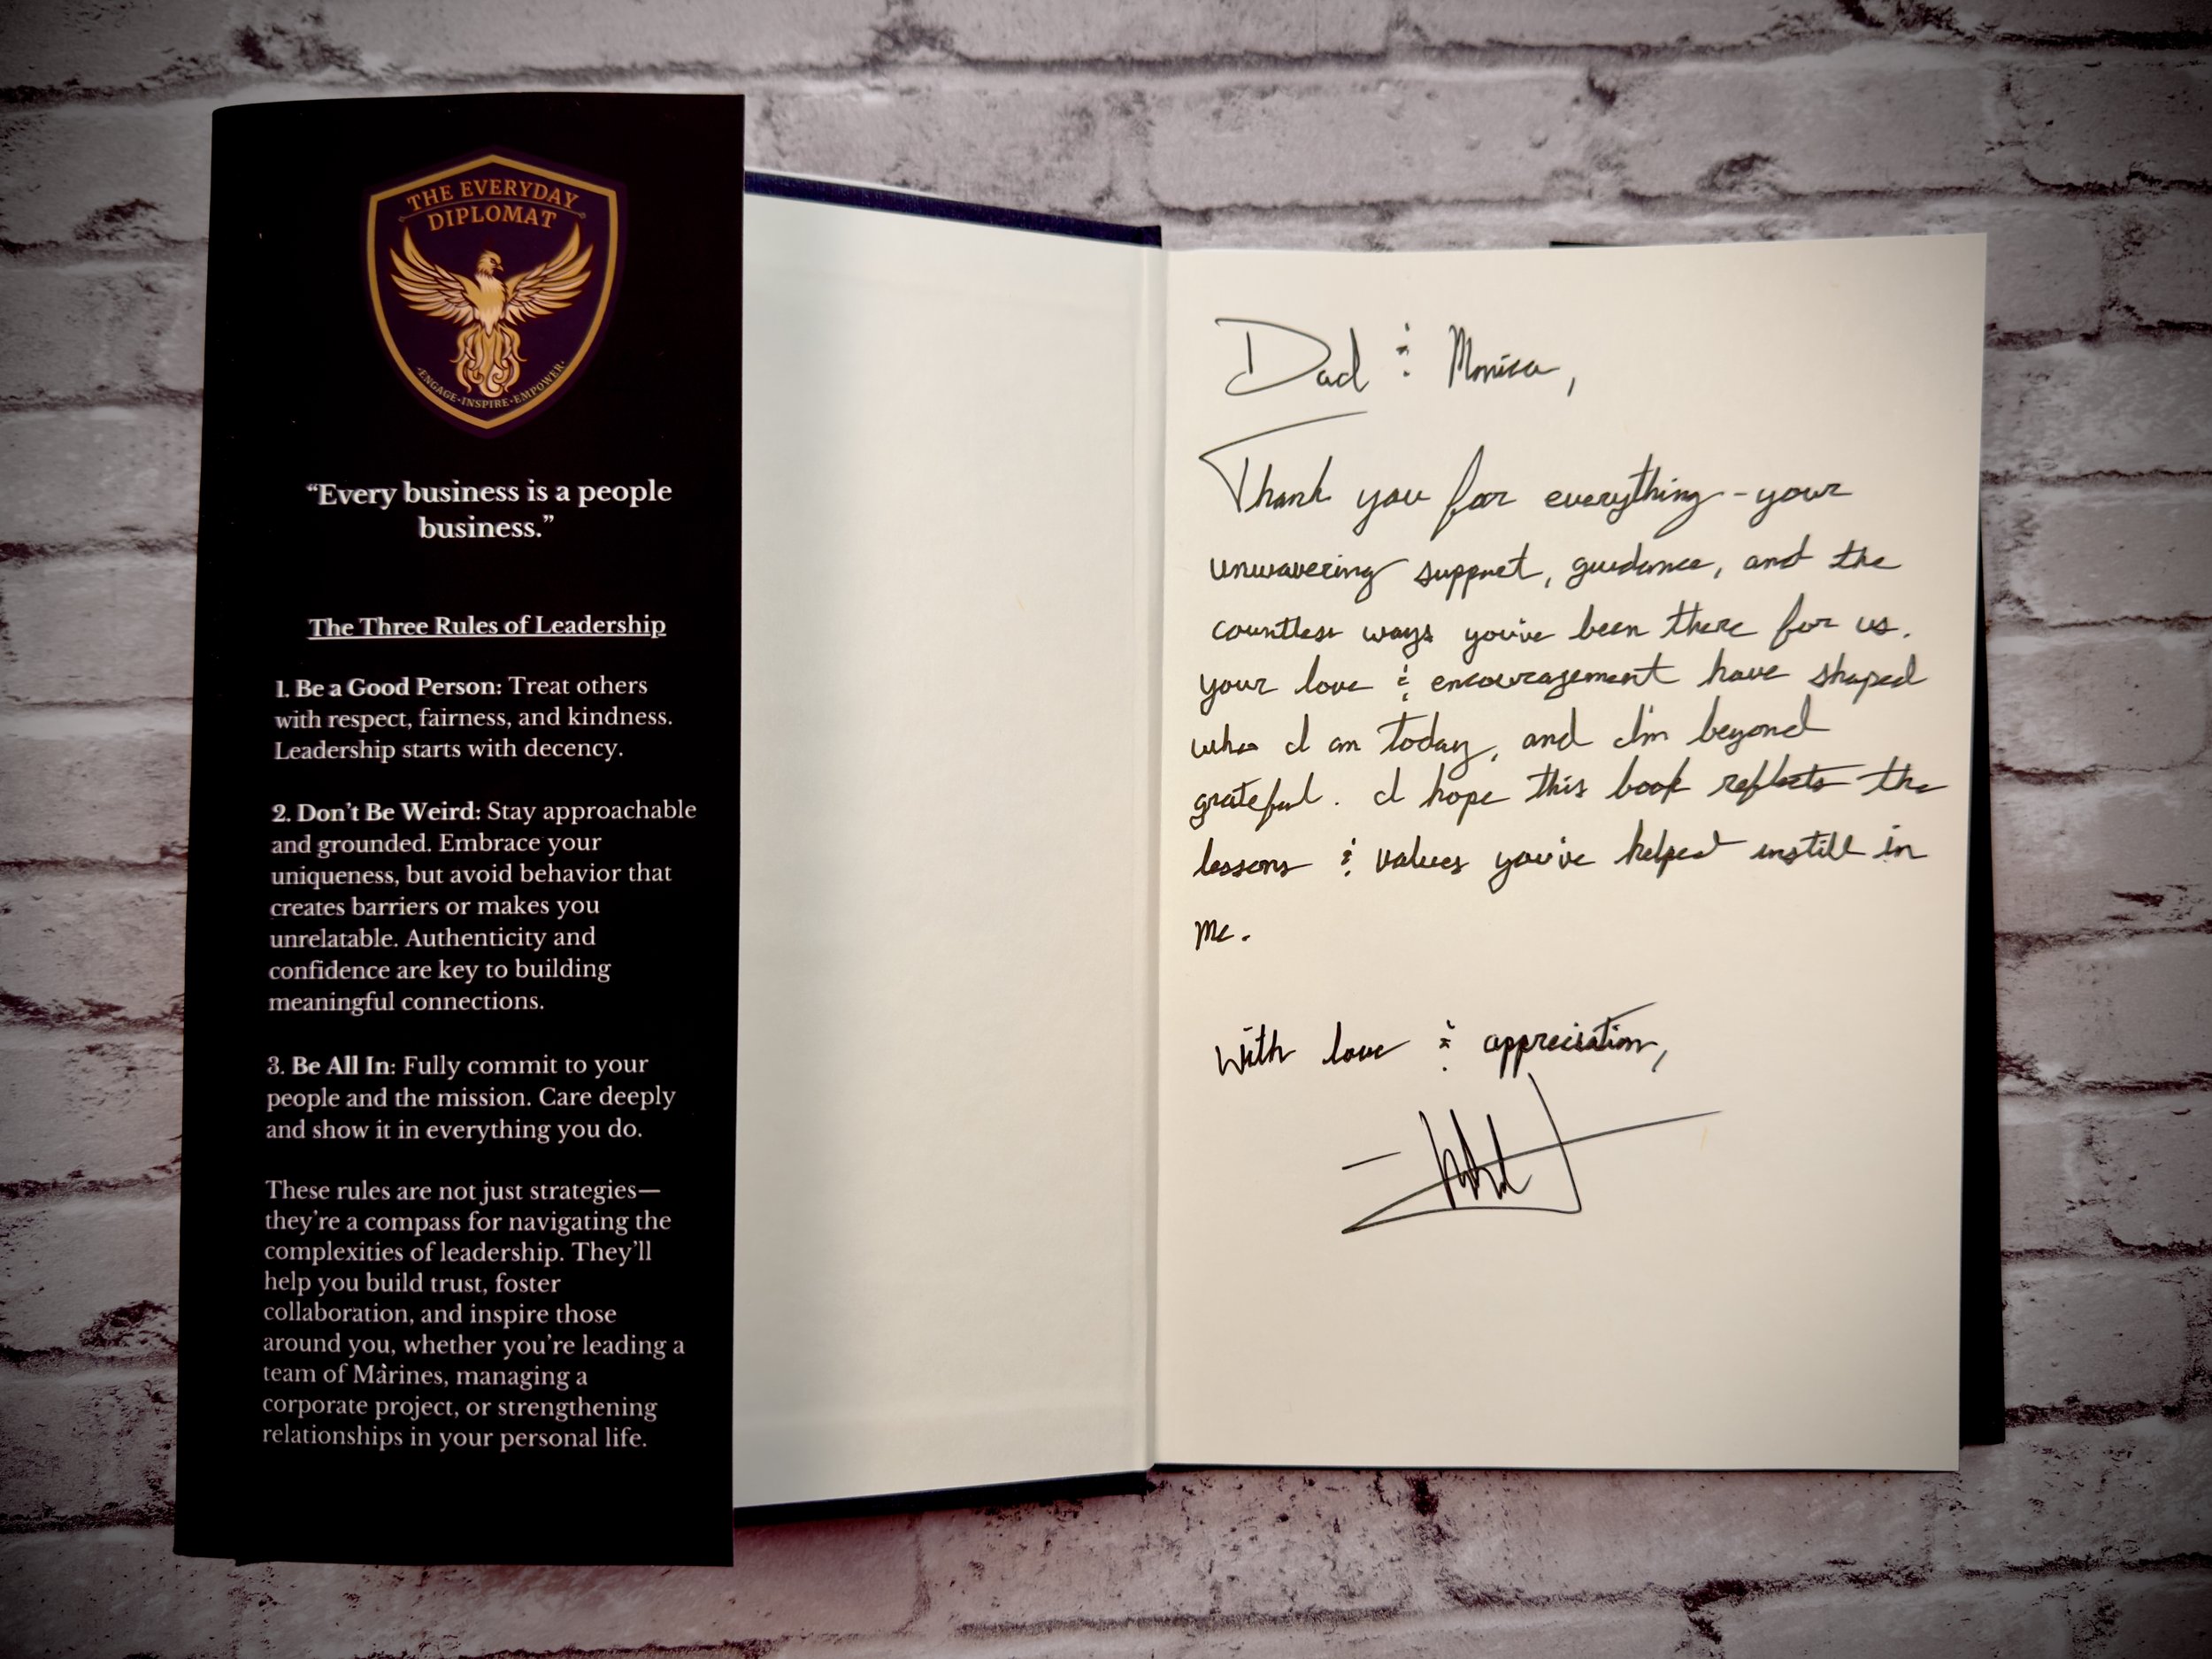 THE EVERYDAY
DIPLOMAT
·ENGAGE·INSPIRE·EMPOWER·
“Every business is a people
business.”
The Three Rules of Leadership
1. Be a Good Person: Treat others
with respect, fairness, and kindness.
Leadership starts with decency.
2. Don’t Be Weird: Stay approachable
and grounded. Embrace your
uniqueness, but avoid behavior that
creates barriers or makes you
unrelatable. Authenticity and
confidence are key to building
meaningful connections.
3. Be All In: Fully commit to your
people and the mission. Care deeply
and show it in everything you do.
These rules are not just strategies—
they’re a compass for navigating the
complexities of leadership. They’ll
help you build trust, foster
collaboration, and inspire those
around you, whether you’re leading a
team of Marines, managing a
corporate project, or strengthening
relationships in your personal life.
Dad & Monica,
Thank you for everything - your
unwavering support, guidance, and the
countless ways you've been there for us.
your love & encouragement have shaped
who I am today, and I'm beyond
grateful. I hope this book reflects the
lessons & values you've helped instill in
me.
With love & appreciation,